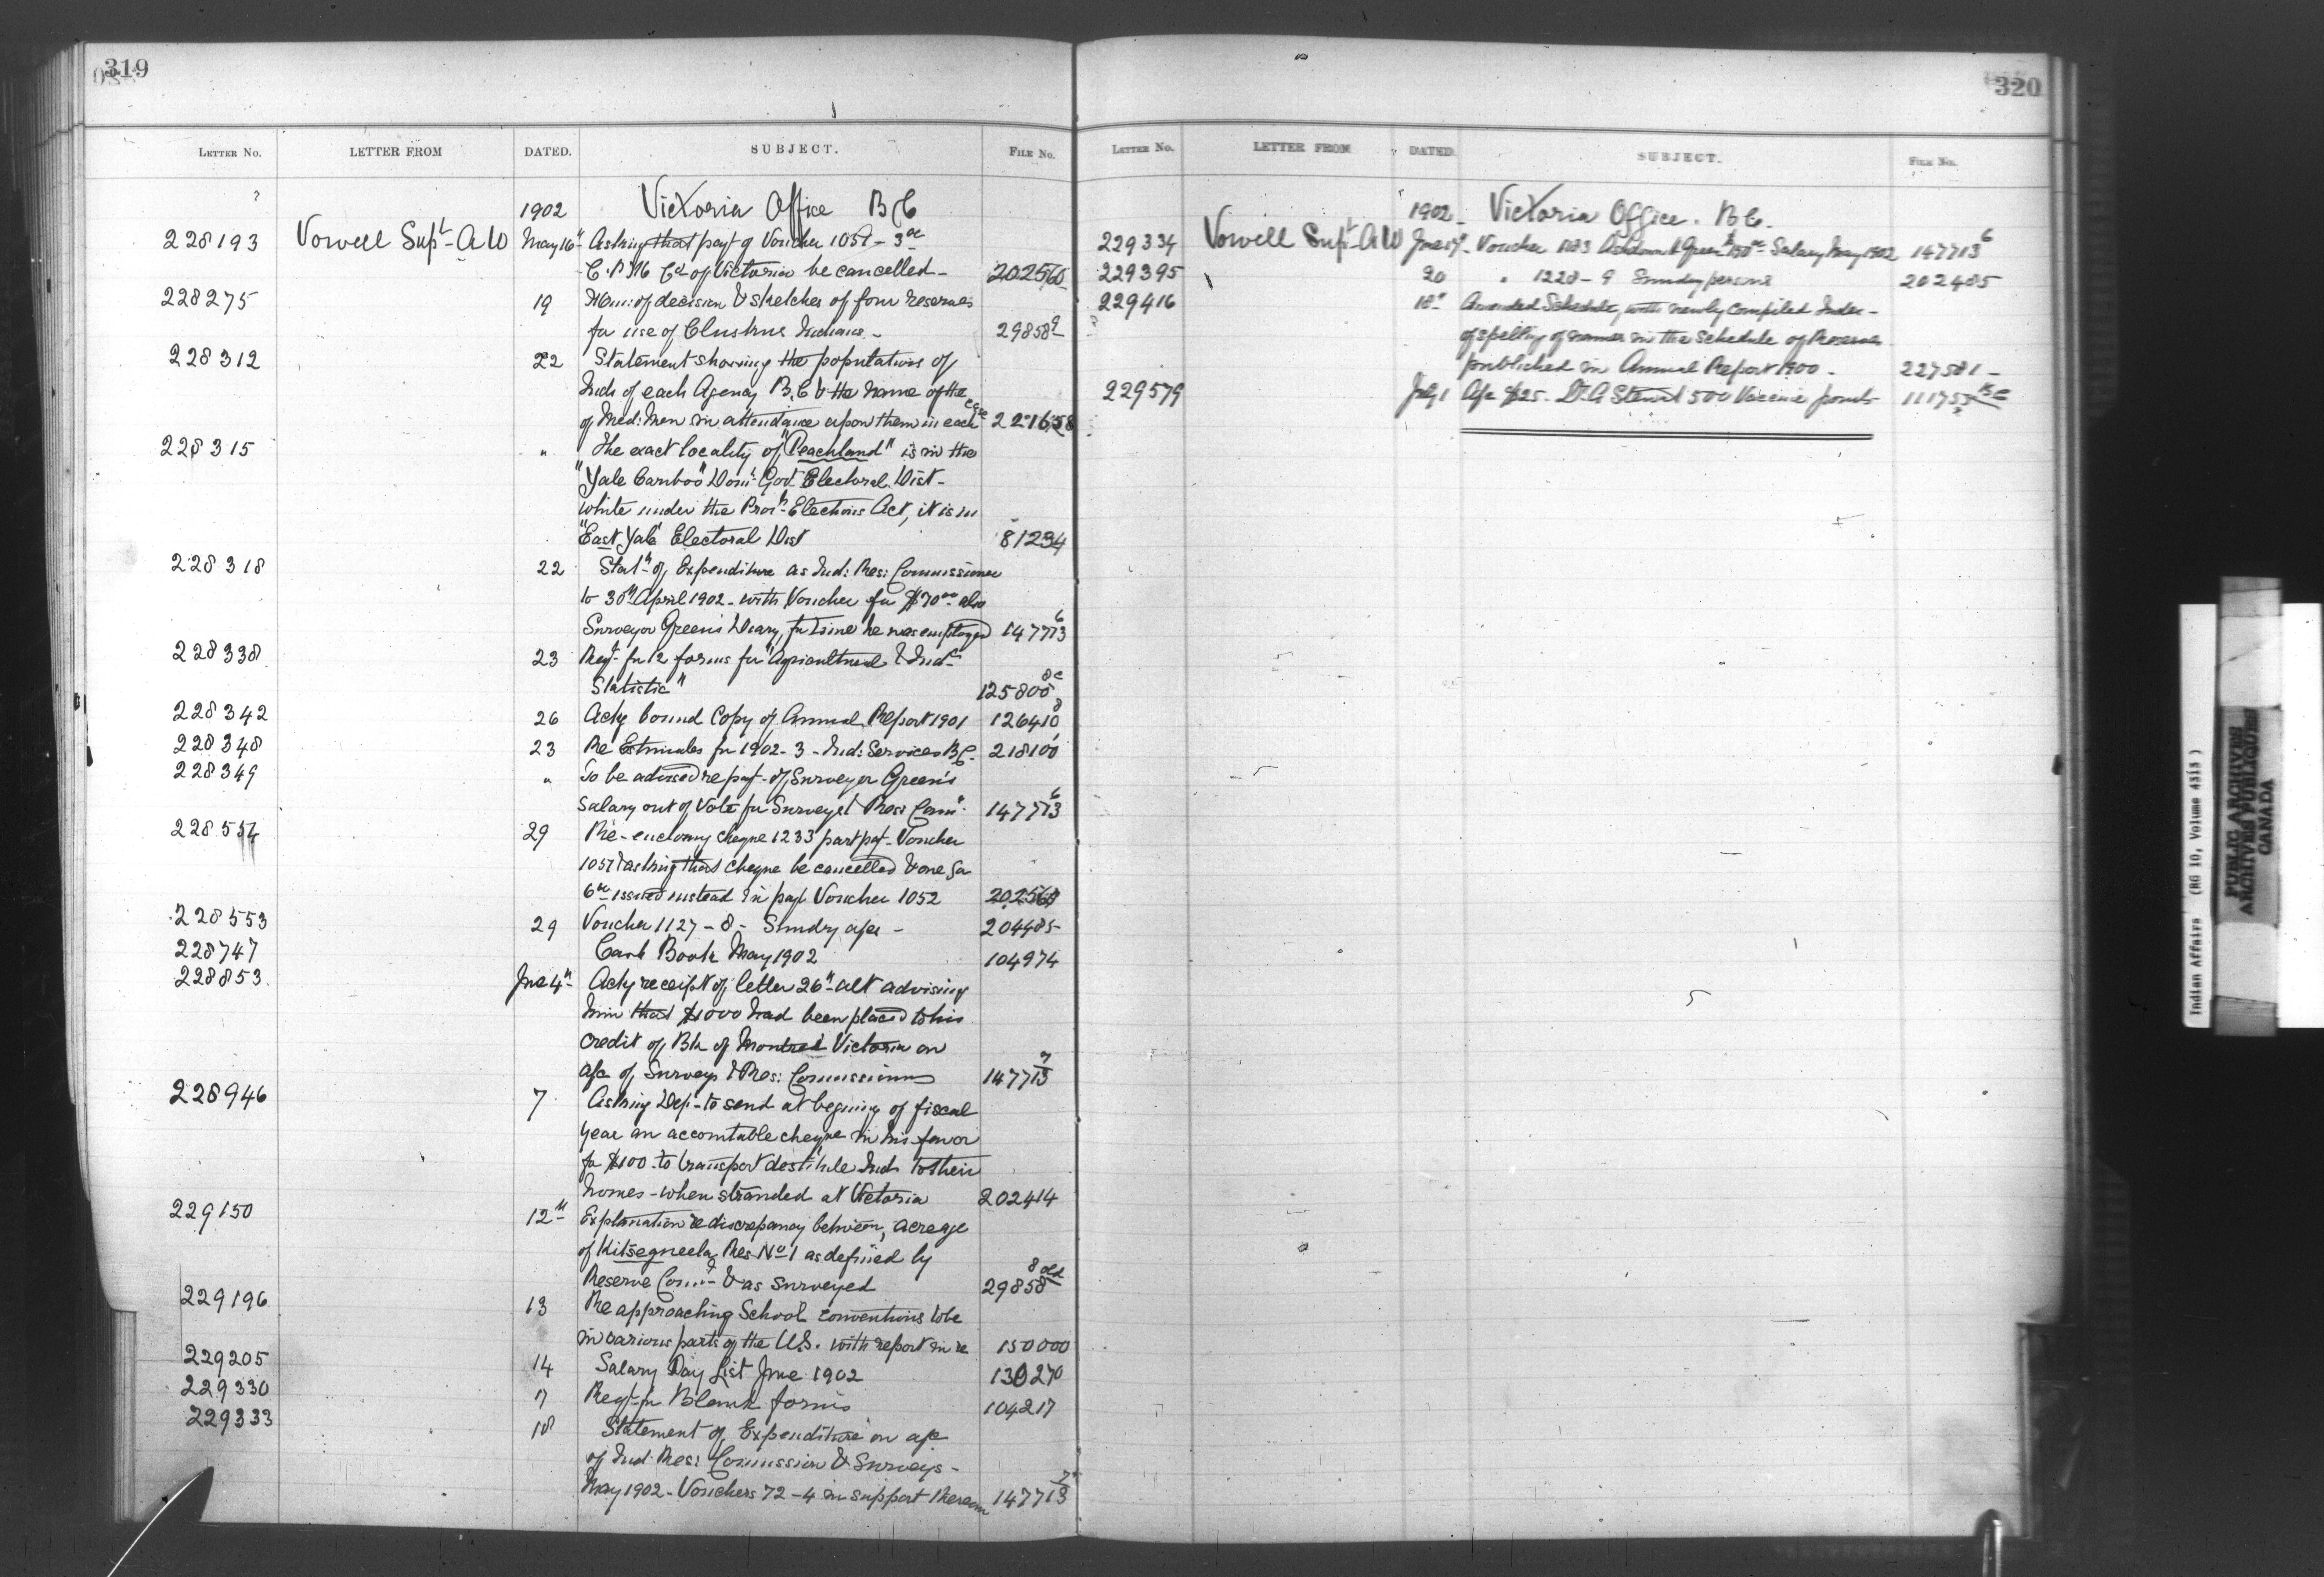 319
LETTER NO. LETTER FROM DATED. SUBJECT. FILE NO.
1902 Victoria Office B C
228193 Vowell Supt A W May 16th Asking that payt of Voucher 1057 - 3oo
Co. of Victoria be cancelled - 202560
228275 19 Mem: of decision & sketches of four reserves
for use of Indians - 29858 9
228312 22 Statement showing the populations of
Inds of each Agency B.C & the name of the
of Med: Men in attendance upon them in each case 221658
228315 " The exact locality of "Peachland" is in the
"Yale Cariboo" Domn Govt Electoral Dist -
while under the Provl Elections Act, it is in
"East Yale" Electoral Dist 81234
228318 22 Statmt of Expenditure as Ind: Res: Commissioner
to 30th April 1902 - with Voucher for $70oo also
Surveyor Green's Diary, for time he was employed 147713 6
228338 23 Reqt for 12 forms for "Agricultural & Indl
Statistic" 125800
228342 26 Ackg bound Copy of Annual Report 1901 126410 8
228348 23 Re Estimates for 1902-3 - Ind: Services B.C. 218100
228349 " To be advised re payt of Surveyor Green's
Salary out of Vote for Surveys & Res: Comn 147713 6
228554 29 Re-enclosing cheque 1233 part payt Voucher
1057 & asking that cheque be cancelled & one for
6oo issued instead in payt Voucher 1052 202560
228553 29 Voucher 1127 - 8 - Sundry a/cs - 204485
228747 Cash Book May 1902 104974
228853 June 4th Ackg receipt of letter 26th ult advising
him that $1000 had been placed to his
credit of Bk of Montreal Victoria on
a/c of Surveys & Res: Commissions 147713 7
228946 7 Asking Dept to send at begining of fiscal
year an accountable cheque in his favor
for $100 to transport destitute Inds to their
homes - when stranded at Victoria 202414
229150 12th Explanation re discrepancy between, acreage
of Kitsegueela Res No 1 as defined by
Reserve Comr & as surveyed 29858 8
229196 13 Re approaching School conventions to be
in various parts of the U.S. with report in re 150000
229205 14 Salary Pay List June 1902 130270
229330 17 Reqt for Blank forms 104217
229333 18 Statement of Expenditure on a/c
of Ind: Res: Commission & Surveys -
May 1902 - Vouchers 72 - 4 in support thereon 147713 7
320
LETTER NO. LETTER FROM DATED. SUBJECT. FILE NO.
1902 Victoria Office. B C.
229334 Vowell Supt A W June 17 Voucher 1183 Ashdown H Green $150oo Salary May 1902 147713 6
229395 20 " 1228 - 9 Sundry persons 202485
229416 18th Amended Schedule, with newly compiled Index -
of spelling of names in the Schedule of Reserves
published in Annual Report 1900 - 227581 -
229579 July 1 A/c $25. Dr A Stewart 500 Vaccine points 111755
Indian Affairs (RG 10, Volume 4313)
PUBLIC ARCHIVES
ARCHIVES PUBLIQUES
CANADA